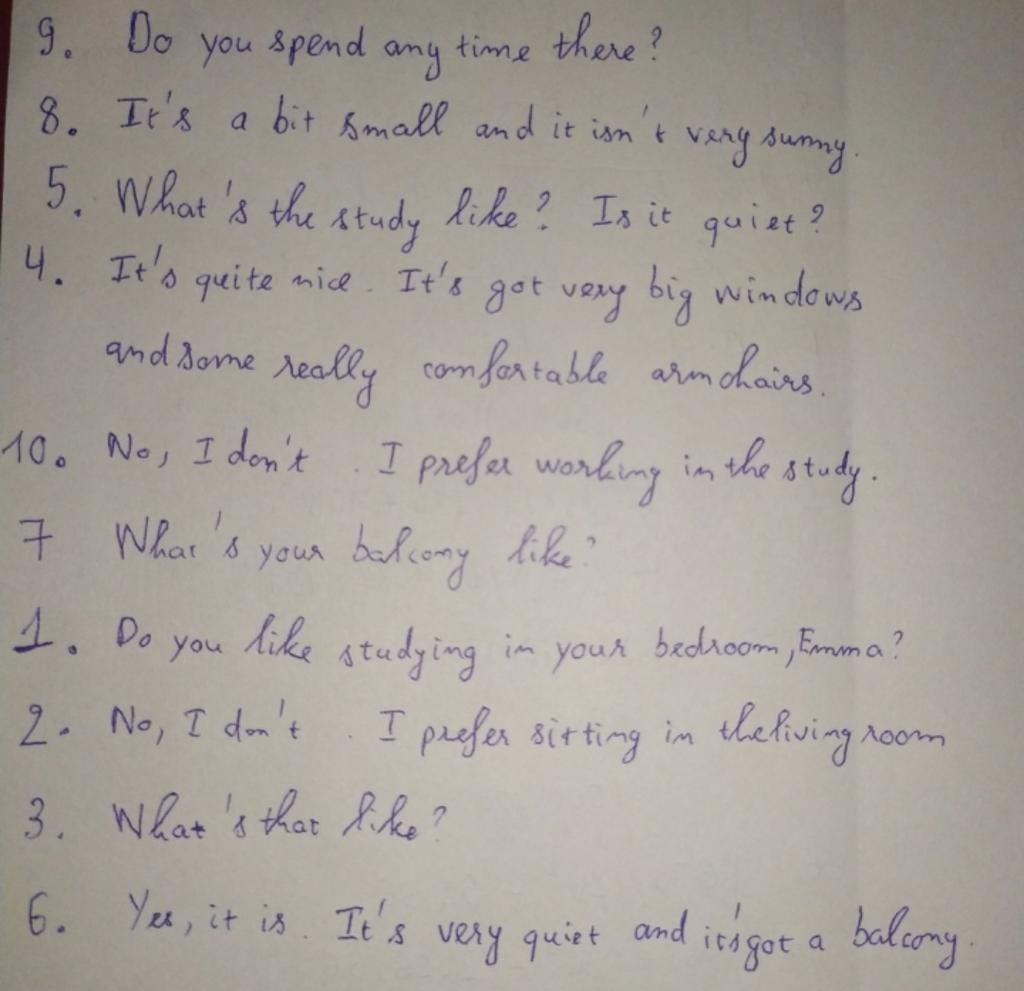 9. Do you spend any time there?
8. It's a bit small and it isn't very sunny.
5. What's the study like? Is it quiet?
4. It's quite nice. It's got very big windows
and some really comfortable armchairs.
10. No, I don't. I prefer working in the study.
7 What's your balcony like?
1. Do you like studying in your bedroom, Emma?
2. No, I don't. I prefer sitting in the living room
3. What's that like?
6. Yes, it is. It's very quiet and it's got a balcony.